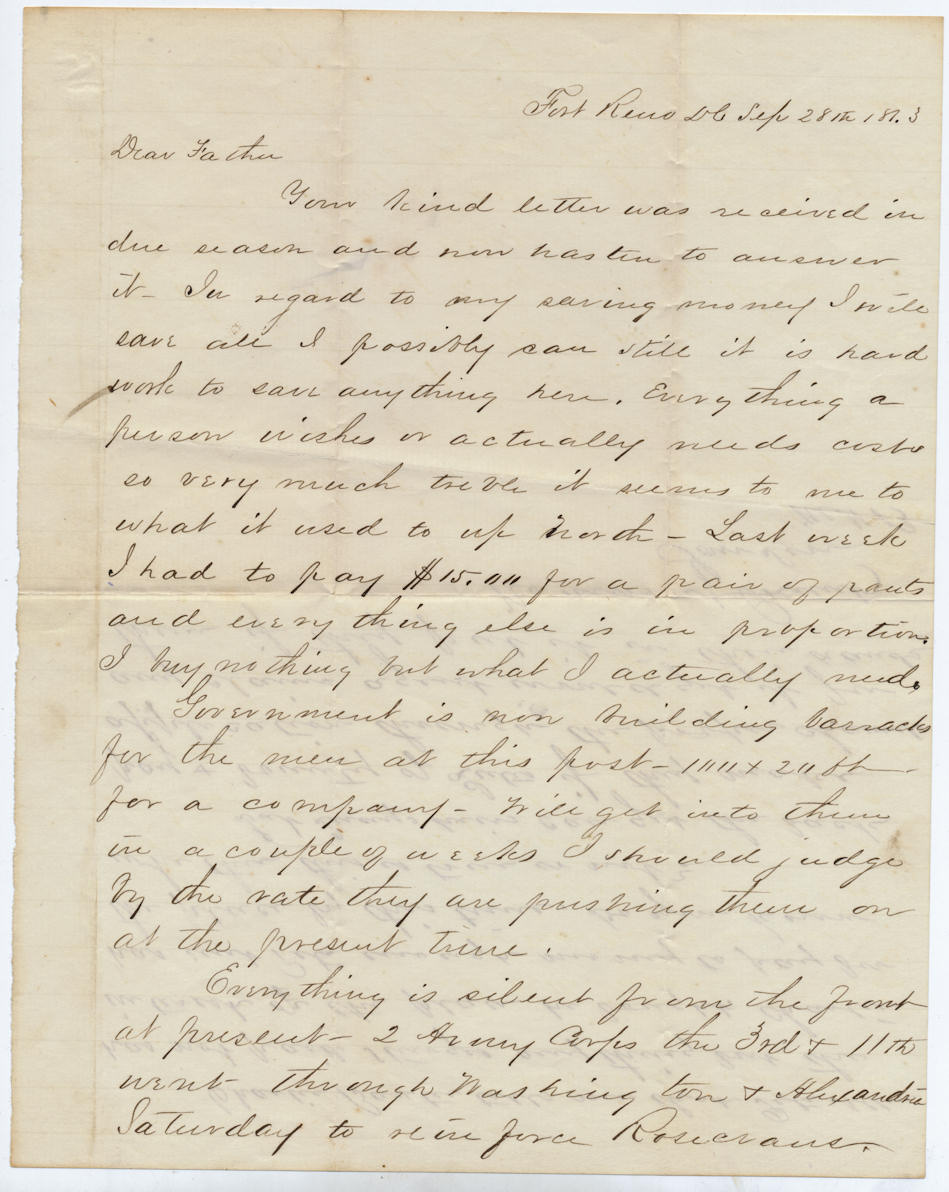 Fort Reno DC Sep 28th 1863
Dear Father
Your kind letter was received in
due season and now hasten to answer
it - In regard to my saving money I will
save all I possibly can still it is hard
work to save anything here. Everything a
person wishes or actually needs costs
so very much treble it seems to me to
what it used to up North - Last week
I had to pay $15.00 for a pair of pants
and everything else is in proportion.
I buy nothing but what I actually need.
Government is now building barracks
for the men at this post - 100 x 20 ft -
for a company - Will get into them
in a couple of weeks I should judge
by the rate they are pushing them on
at the present time.
Everything is silent from the front
at present - 2 Army Corps the 3rd & 11th
went through Washington & Alexandria
Saturday to reinforce Rosecrans.